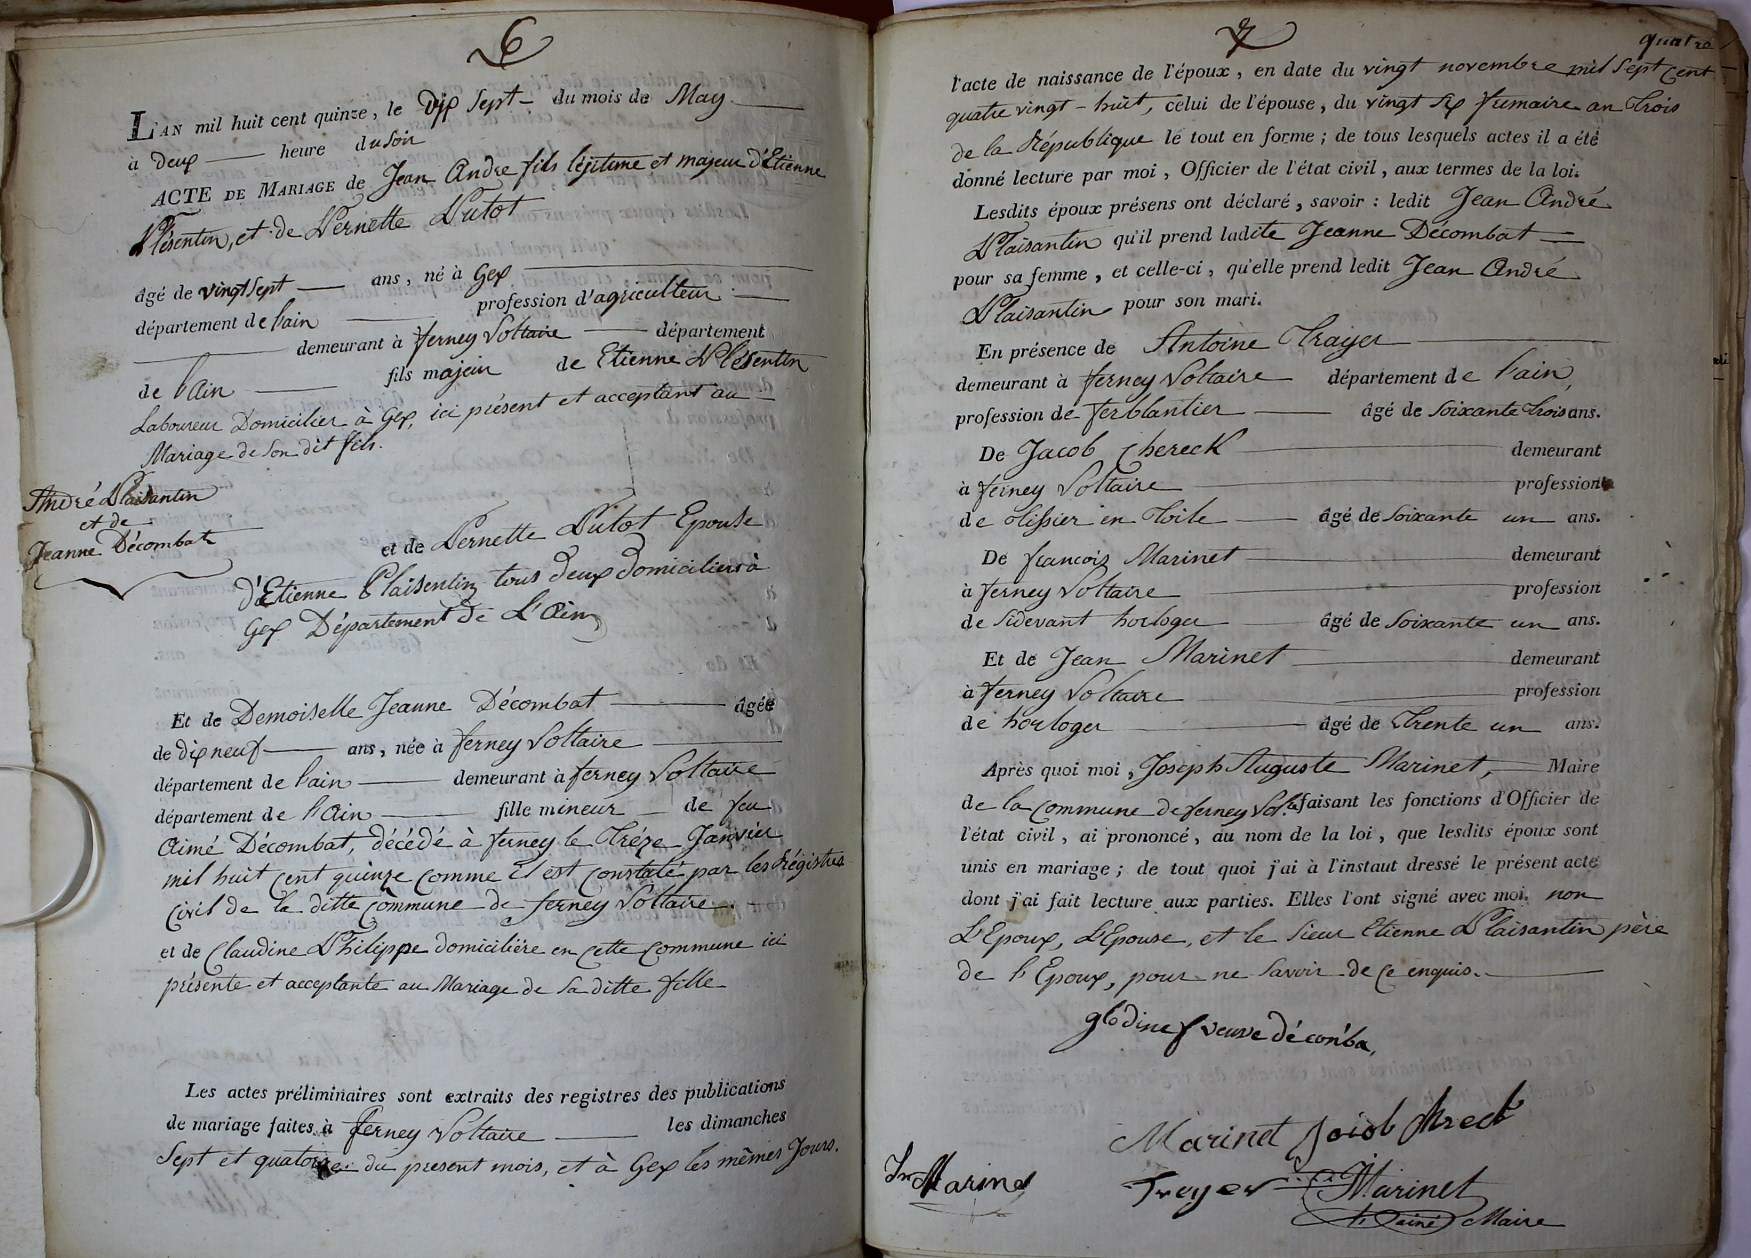 6
L'AN mil huit cent quinze, le dix sept du mois de May
à deux heure du soir
ACTE DE MARIAGE de Jean André fils légitime et majeur d'Etienne
Plésentin, et de Pernette Dutot
âgé de vingt sept ans, né à Gex
département de l'ain profession d'agriculteur
demeurant à ferney Voltaire département
de l'Ain fils majeur de Etienne Plésentin
Laboureur Domicilier à Gex, ici présent et acceptant au
Mariage de Son dit fils.
André Plaisantin
et de
Jeanne Décombat
et de Pernette Dutot Epouse
d'Etienne Plaisentin tous deux domiciliers à
Gex Département de L'Ain
Et de Demoiselle Jeanne Décombat âgée
de dix neuf ans, née à ferney Voltaire
département de l'ain demeurant à ferney Voltaire
département de l'Ain fille mineur de feu
Aimé Décombat, décédé à ferney le Trèze Janvier
mil huit cent quinze comme il est constaté par les Régistres
Civil de la ditte Commune de ferney Voltaire.
et de Claudine Philippe domicilière en cette Commune ici
présente et acceptante au Mariage de Sa ditte fille
Les actes préliminaires sont extraits des registres des publications
de mariage faites à Ferney Voltaire les dimanches
Sept et quatorze du present mois, et à Gex les mêmes Jours.
7
quatre
l'acte de naissance de l'époux, en date du vingt novembre mil Sept Cent
quatre vingt-huit, celui de l'épouse, du vingt six frumaire an Trois
de la République le tout en forme ; de tous lesquels actes il a été
donné lecture par moi, Officier de l'état civil, aux termes de la loi.
Lesdits époux présens ont déclaré, savoir : ledit Jean André
Plaisantin qu'il prend ladite Jeanne Décombat
pour sa femme, et celle-ci, qu'elle prend ledit Jean André
Plaisantin pour son mari.
En présence de Antoine Trayer
demeurant à ferney Voltaire département de l'ain,
profession de ferblantier âgé de Soixante Trois ans.
De Jacob Chereck demeurant
à ferney Voltaire profession
de Tissier en Toile âgé de Soixante un ans.
De francois Marinet demeurant
à ferney Voltaire profession
de Sidevant horloger âgé de Soixante un ans.
Et de Jean Marinet demeurant
à ferney Voltaire profession
de horloger âgé de Trente un ans.
Après quoi moi, Joseph Auguste Marinet, Maire
de la Commune de ferney Vol.re faisant les fonctions d'Officier de
l'état civil, ai prononcé, au nom de la loi, que lesdits époux sont
unis en mariage ; de tout quoi j'ai à l'instaut dressé le présent acte
dont j'ai fait lecture aux parties. Elles l'ont signé avec moi. non
L'Epoux, L'Epouse, et le Sieur Etienne Plaisantin père
de l'Epoux, pour ne Savoir de ce enquis.
veuve déconba,
Marinet Jacob
Marinet
Treyer Marinet
Maire